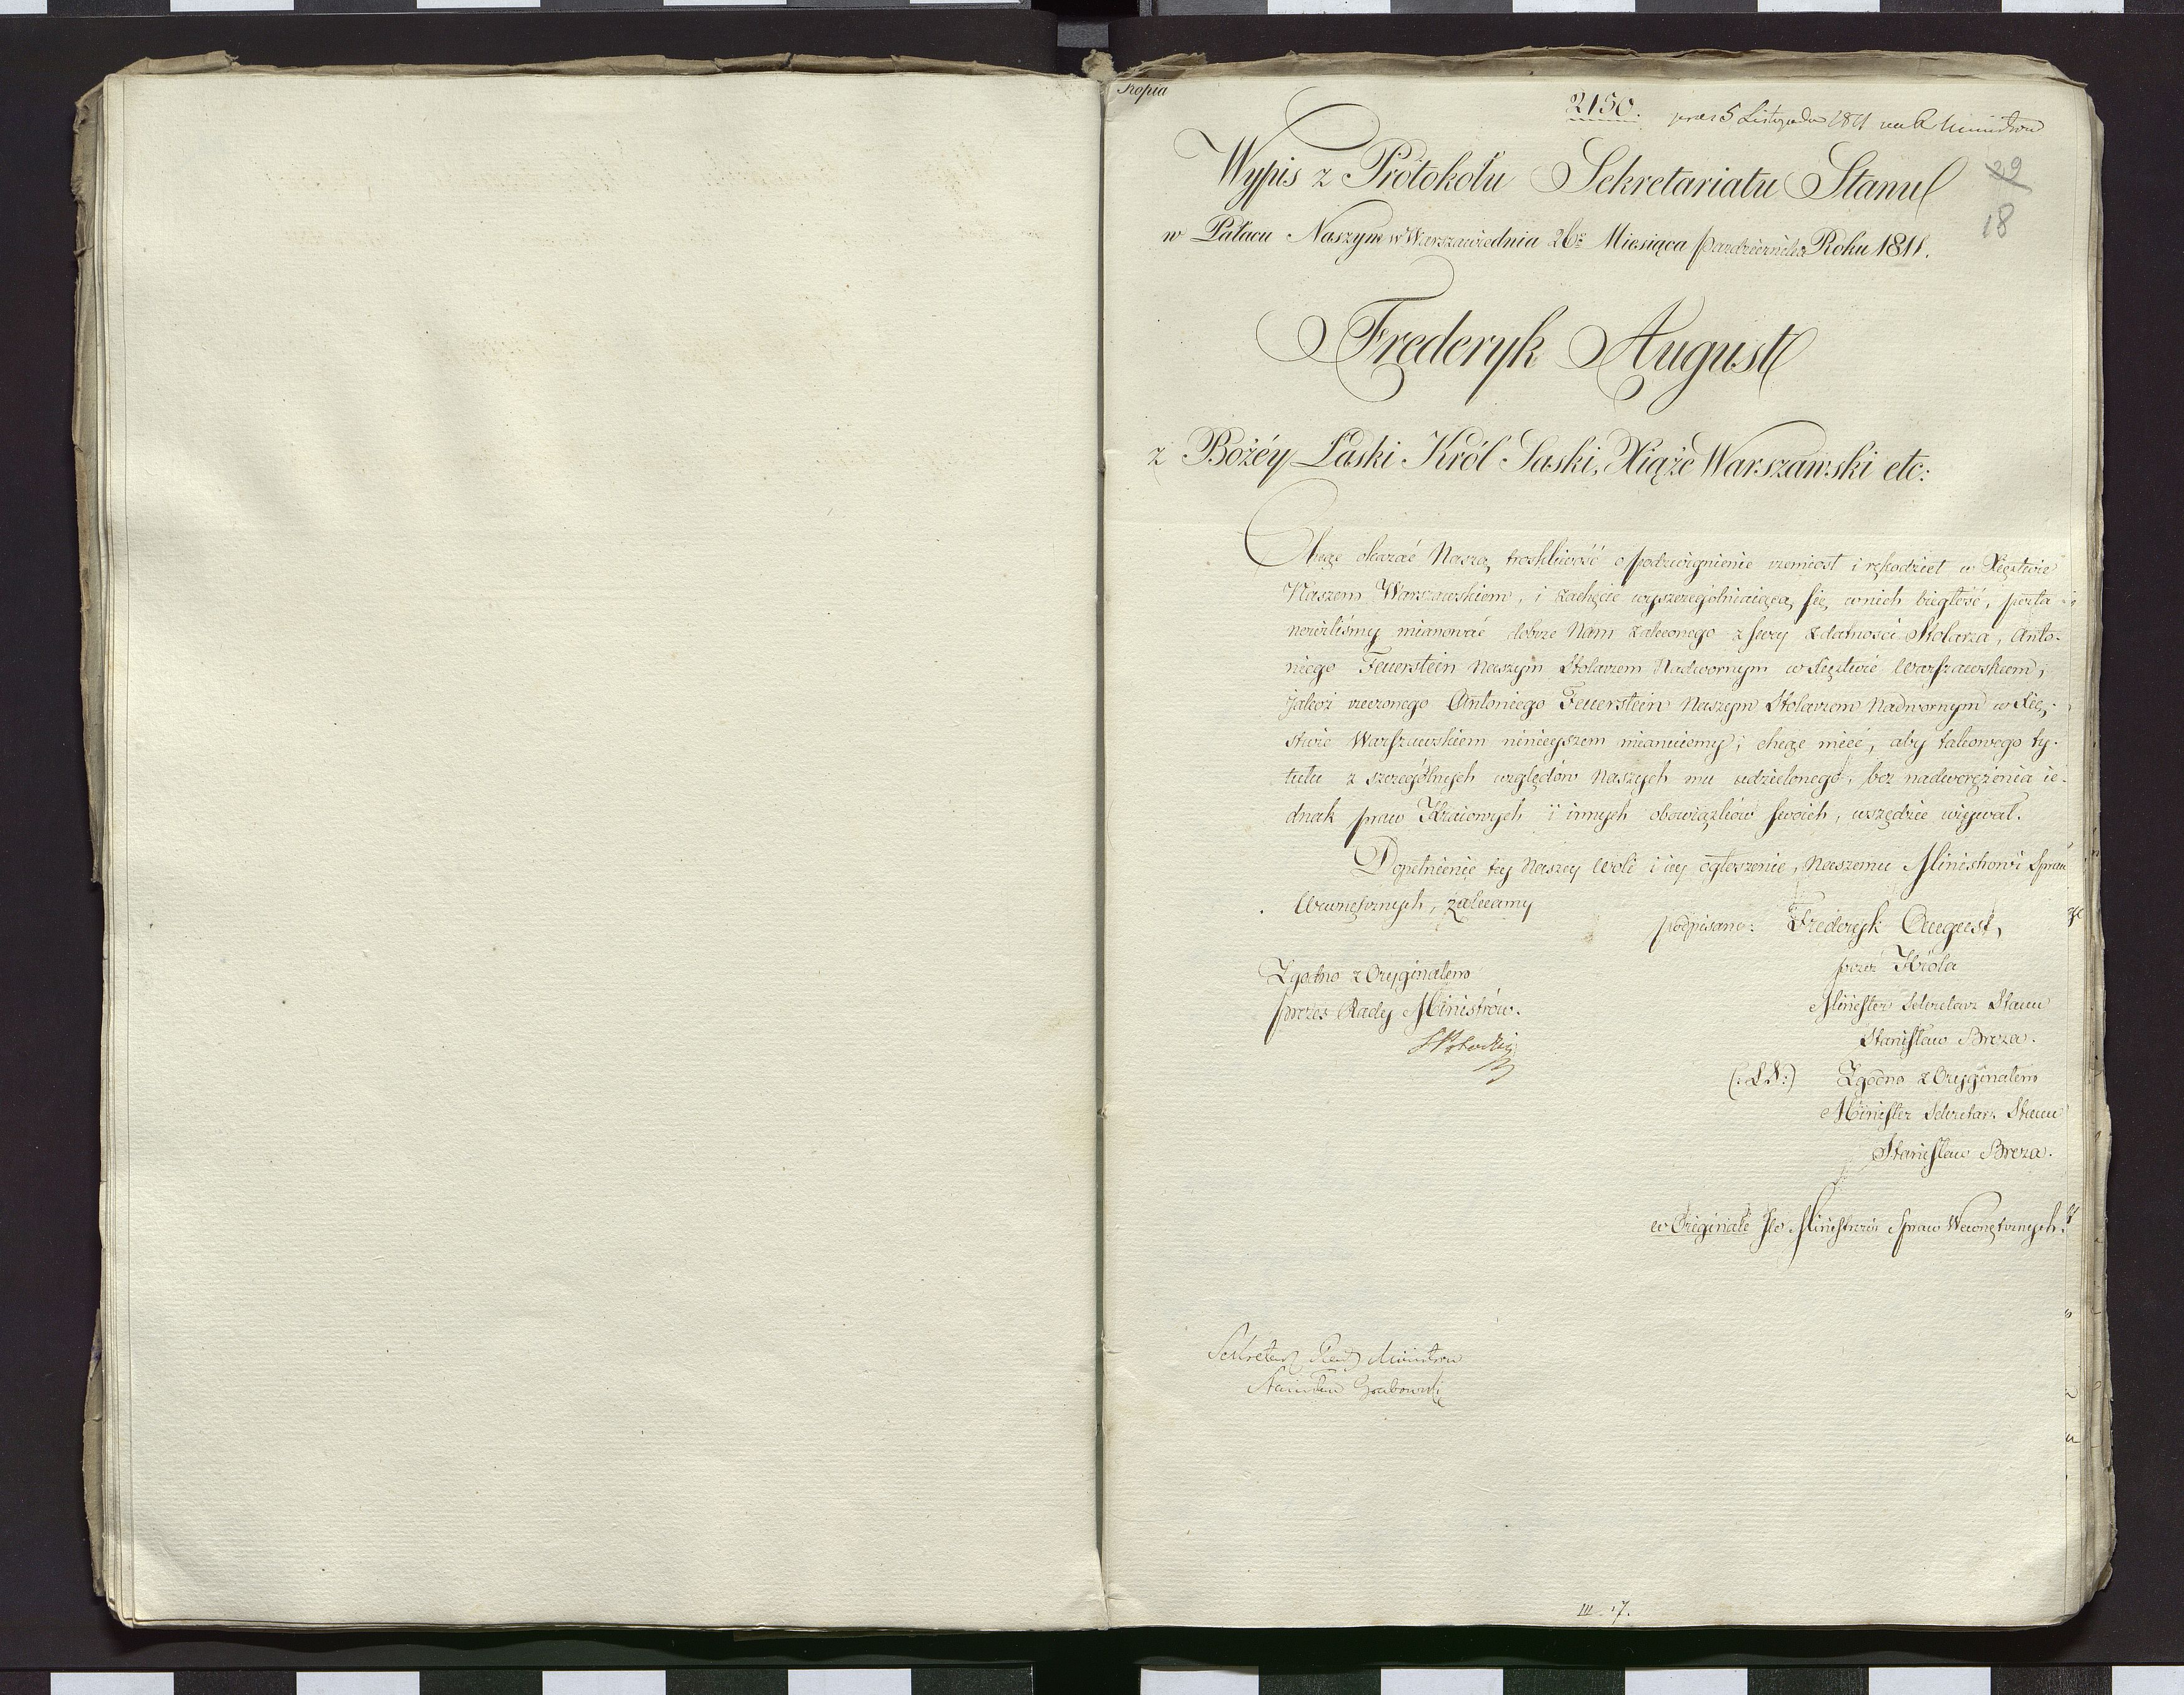 Kopia
2150. prez 5 Listopada 1811 na R Ministrów
Wypis z Protokołu Sekretariatu Stanu
29
18
w Pałacu Naszym w Warszawie dnia 26go Miesiąca Pazdziernika Roku 1811.
Frederyk August
z Bożéy Łaski Król Saski, Xiąże Warszawski etc:
Chcąc okazać Naszą troskliwość o podzwignienie rzemiosł i rękodzieł w Xięstwie
Naszem Warszawskiem, i zachęcić wyszczególniaiącą się w nich biegłość, posta-
nowiliśmy mianować dobrze Nam zaleconego z swey zdatności Stolarza, Anto-
niego Feuerstein Naszym Stolarzem Nadwornym w Xięstwie Warszawskiem;
Jakoż rzeczonego Antoniego Feuerstein Naszym Stolarzem Nadwornym w Xię-
stwie Warszawskiem ninieyszem mianuiemy; chcąc mieć, aby takowego ty-
tułu z szczególnych względów Naszych mu udzielonego, bez nadwerężenia ie-
dnak praw Kraiowych i innych obowiązków swoich, wszędzie używał.
Dopełnienie tey Naszey woli i iey ogłoszenie, Naszemu Ministrowi Spraw
Wewnętrznych, zalecamy
podpisano: Frederyk August,
przez Króla
Minister Sekretarz Stanu
Stanisław Breza.
(:L.S:) Zgodno z Oryginałem
Minister Sekretarz Stanu
Stanisław Breza.
Zgodno z Oryginałem
Prezes Rady Ministrów.
S Potocki
w Originale do Ministra Spraw Wewnętrznych.
Sekretarz Rady Ministrów
Stanisław Grabowski
III 17.